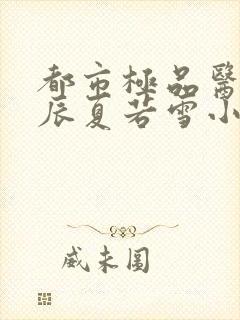 都市極品醫
辰夏若雪小
威未圓